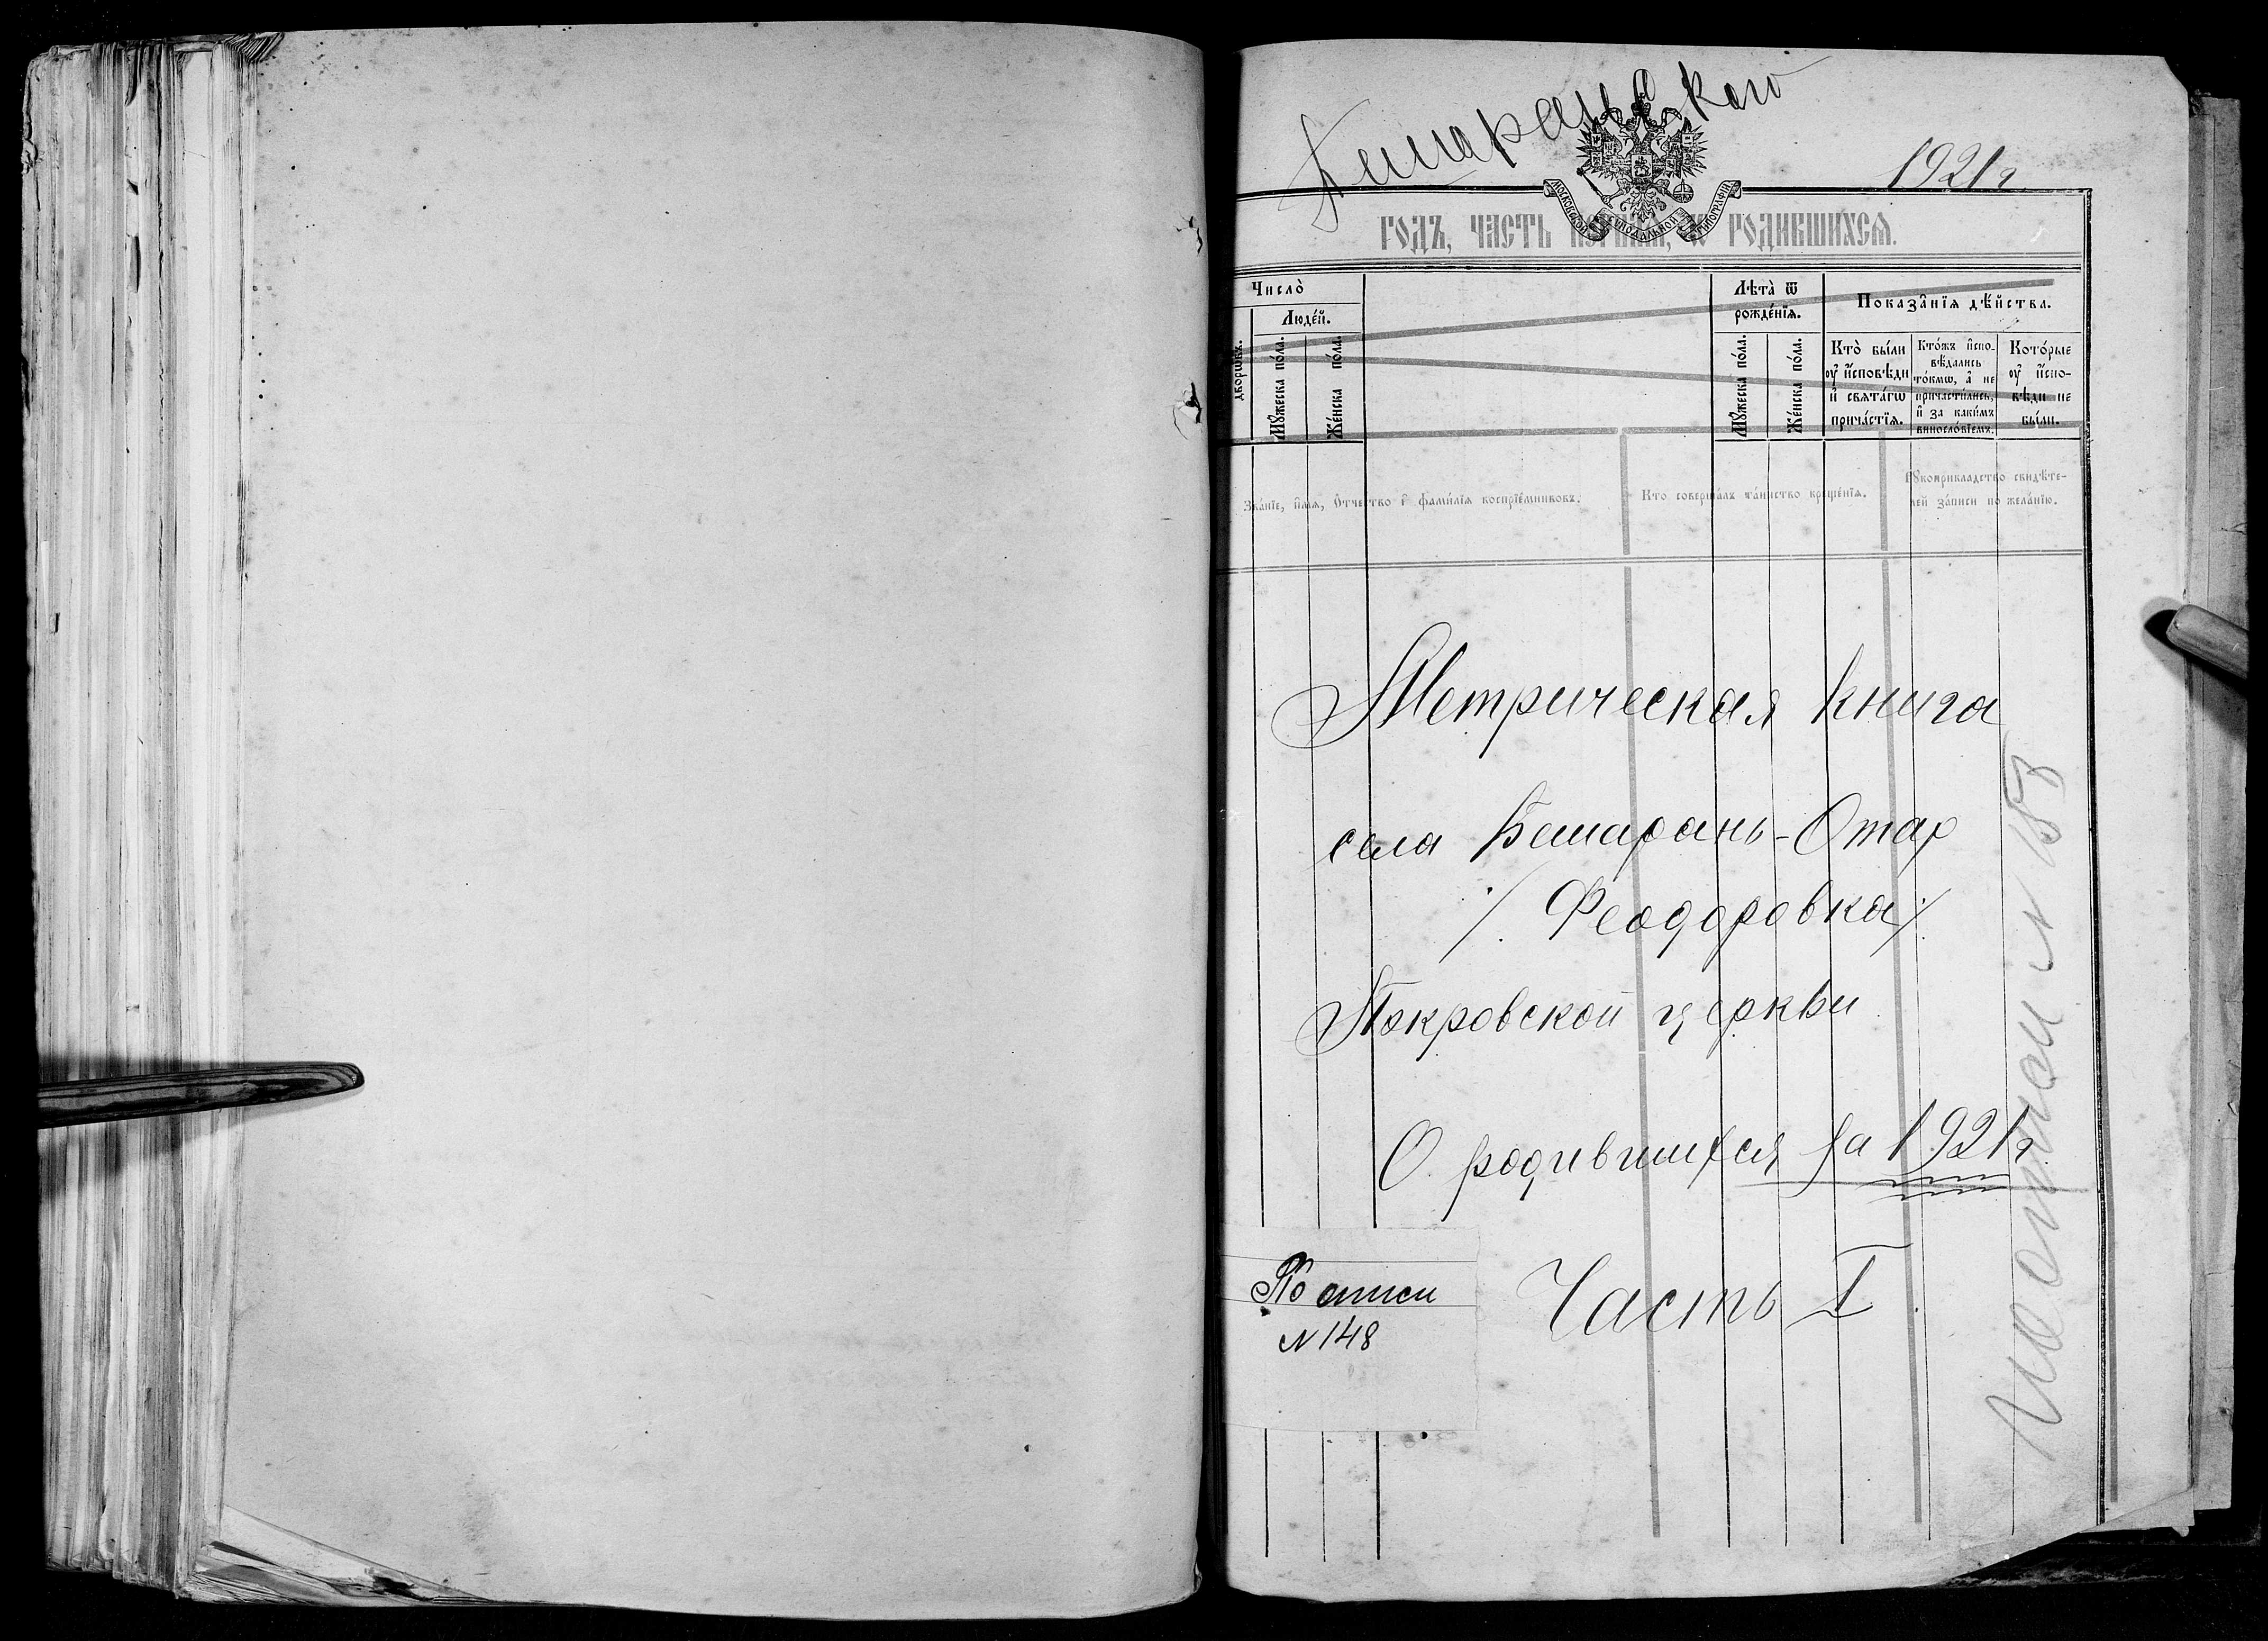 Бешаранского
1921 г
МОСКОВСКОЙ СѴНОДАЛЬНОЙ ТИПОГРАФІИ
ГОДЪ, ЧАСТЬ ПЕРВАЯ, Ѡ РОДИВШИХСѦ.
Число̀
Люде́й.
дворѡвъ.
Мꙋ́жеска по́ла.
Же́нска по́ла.
Лѣта̀ ѿ
рожде́нїя.
Мꙋ́жеска по́ла.
Же́нска по́ла.
Показа̑нїя дѣ́йства.
Кто̀ бы́ли
ᲂу҆ и҆сповѣди
и҆ свята́гѡ
прича́стїя.
Кто́жъ и҆спо-
вѣ́дались
то́кмѡ, а҆ не
причасти́лись,
и҆ за каки́мъ
винословїемъ.
Кото́рые
ᲂу҆ и҆спо-
вѣди не
бы́ли.
Зва́нїе, и҆́мя, ѻ҆́тчество и҆ фами́лїя воспрїе́мниковъ.
Кто соверша́лъ та́инство креще́нїя.
Рꙋкоприкладство свидѣте-
лей за́писи по жела́нїю.
Метрическая книга
села Бешарань-Отар
/. Феодоровка ./
Покровской церкви
О родившихся за 1921 г.
Часть I
По описи
№ 148